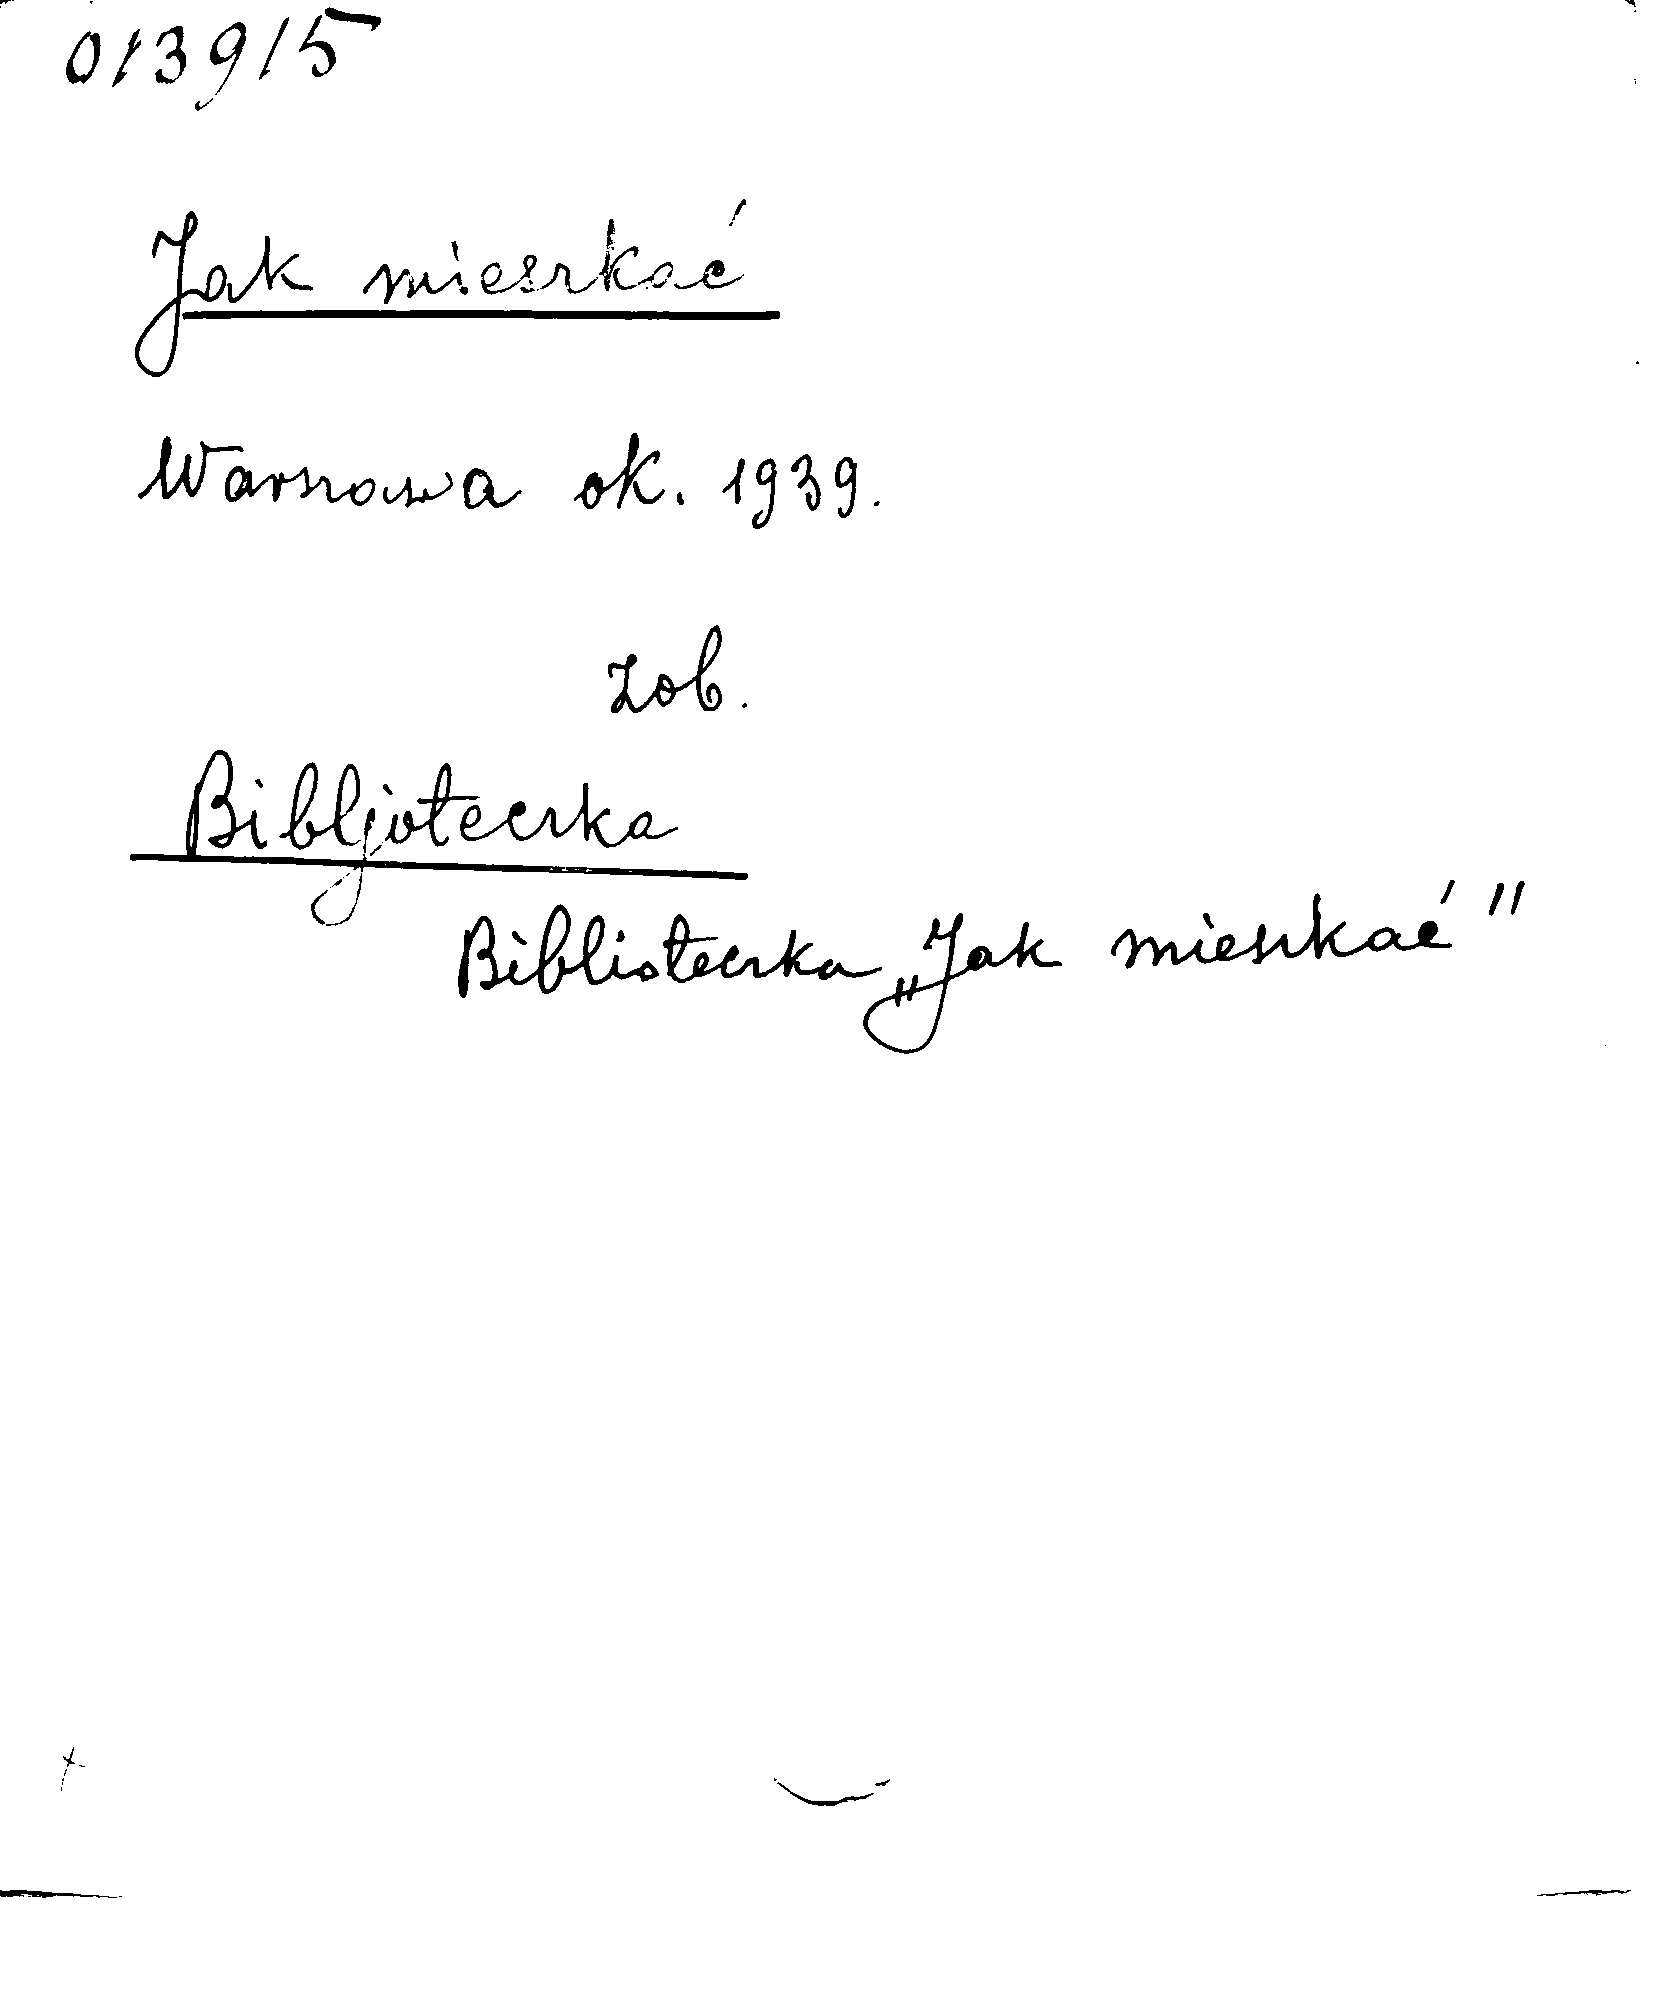 013915
Jak mieszkać
Warszawa ok. 1939.
zob.
Bibljoteczka
Biblioteczka „Jak mieszkać"